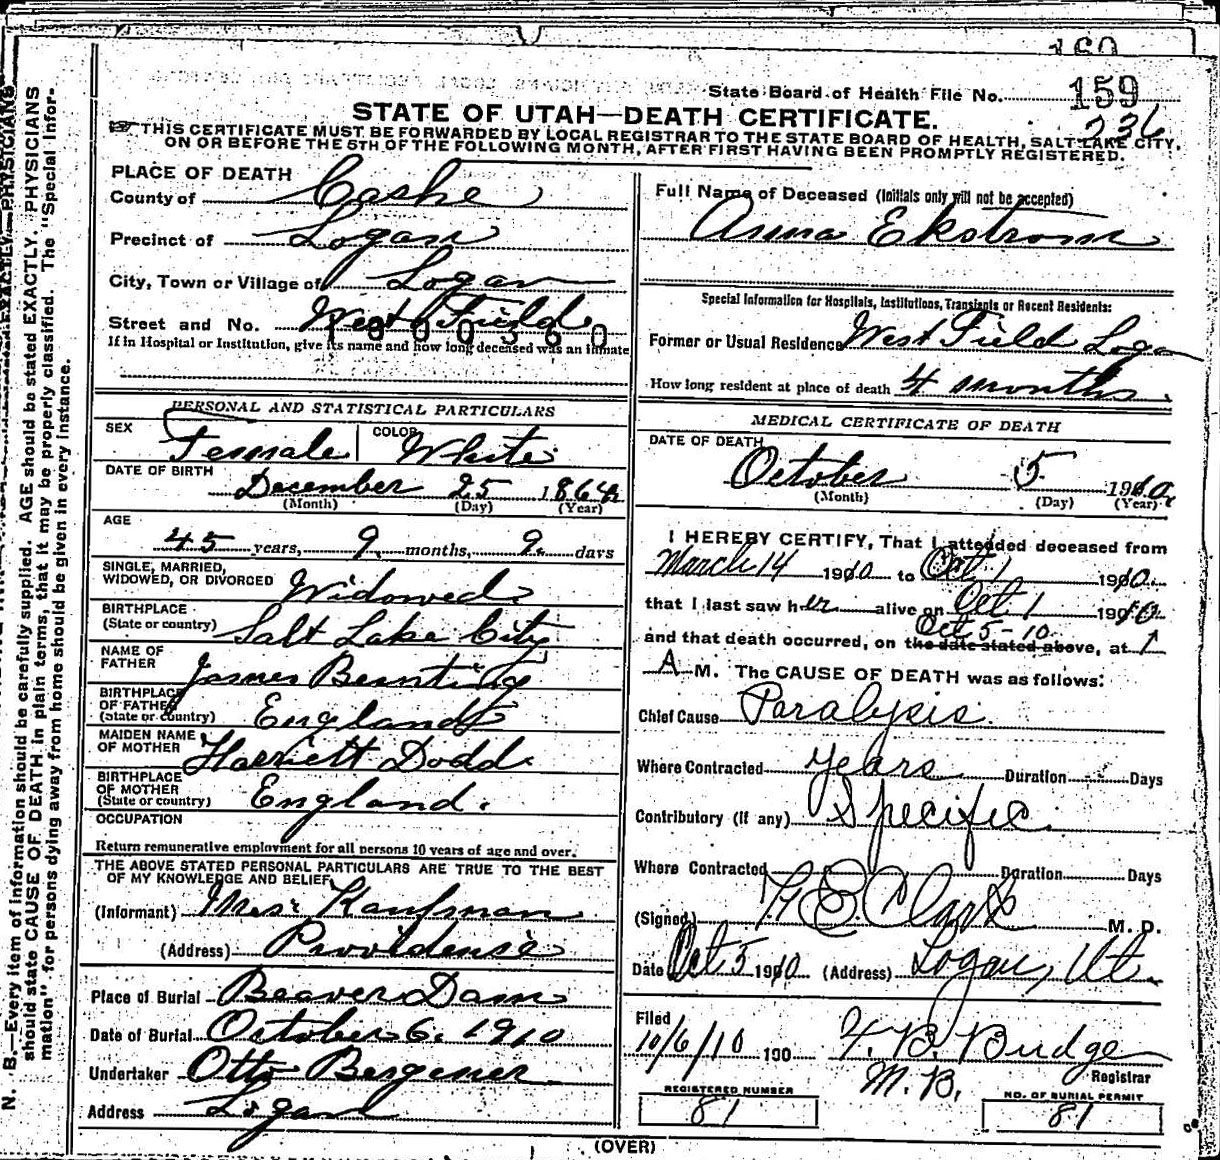 160
State Board of Health File No. 159
236
STATE OF UTAH—DEATH CERTIFICATE.
THIS CERTIFICATE MUST BE FORWARDED BY LOCAL REGISTRAR TO THE STATE BOARD OF HEALTH, SALT LAKE CITY,
ON OR BEFORE THE 5TH OF THE FOLLOWING MONTH, AFTER FIRST HAVING BEEN PROMPTLY REGISTERED.
N. B.—Every item of information should be carefully supplied. AGE should be stated EXACTLY. PHYSICIANS
should state CAUSE OF DEATH in plain terms, that it may be properly classified. The "Special Infor-
mation" for persons dying away from home should be given in every instance.
PLACE OF DEATH
County of Cashe
Precinct of Logan
City, Town or Village of Logan
Street and No. West Field
1800360
If in Hospital or Institution, give its name and how long deceased was an inmate
PERSONAL AND STATISTICAL PARTICULARS
SEX Female COLOR White
DATE OF BIRTH
December 25 1864
(Month) (Day) (Year)
AGE
45 years, 9 months, 9 days
SINGLE, MARRIED,
WIDOWED, OR DIVORCED Widowed
BIRTHPLACE
(State or country) Salt Lake City
NAME OF
FATHER James Bunting
BIRTHPLACE
OF FATHER
(State or country) England
MAIDEN NAME
OF MOTHER Harriett Dodd
BIRTHPLACE
OF MOTHER
(State or country) England.
OCCUPATION
Return remunerative employment for all persons 10 years of age and over.
THE ABOVE STATED PERSONAL PARTICULARS ARE TRUE TO THE BEST
OF MY KNOWLEDGE AND BELIEF
(Informant) Mrs. Kaufman
(Address) Providense
Place of Burial Beaver Dam
Date of Burial October 6. 1910
Undertaker Otto Bergener
Address Logan
Full Name of Deceased (Initials only will not be accepted)
Anna Ekstrom
Special Information for Hospitals, Institutions, Transients or Recent Residents:
Former or Usual Residence West Field Logan
How long resident at place of death 4 months.
MEDICAL CERTIFICATE OF DEATH
DATE OF DEATH
October 5 1910
(Month) (Day) (Year)
I HEREBY CERTIFY, That I attended deceased from
March 14 1910 to Oct 1 1910
that I last saw her alive on Oct 1 1910
Oct 5-10
and that death occurred, on the date stated above, at 1
A M. The CAUSE OF DEATH was as follows:
Chief Cause Paralysis.
Where Contracted years Duration Days
Contributory (If any) Specific.
Where Contracted Duration Days
(Signed) Clark M. D.
Date Oct 5 1910 (Address) Logan, Ut.
Filed
10/6/10 190 Budge
M.B. Registrar
REGISTERED NUMBER
81
NO. OF BURIAL PERMIT
81
(OVER)